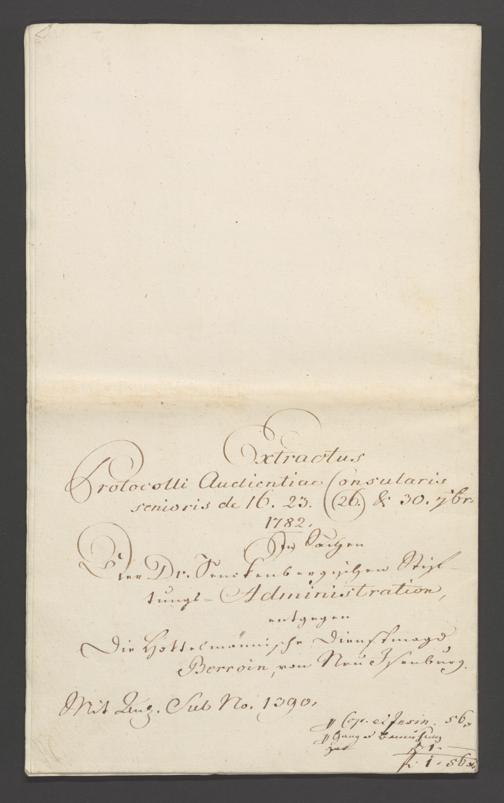 Extractus
Protocolli Audientiae Consularis
senioris de 16. 23. (26.) & 30. 7br.
1782.
In Sachen
Der Dr. Senckenbergischen Stif-
tungs-Administration,
entgegen
Die Hottelmännische Dienstmagd
Berroin, von Neu Isenburg.
Mit Anz. Sub No. 1390.
Cop. et Insin. 56
1.
f. 1. 56 x